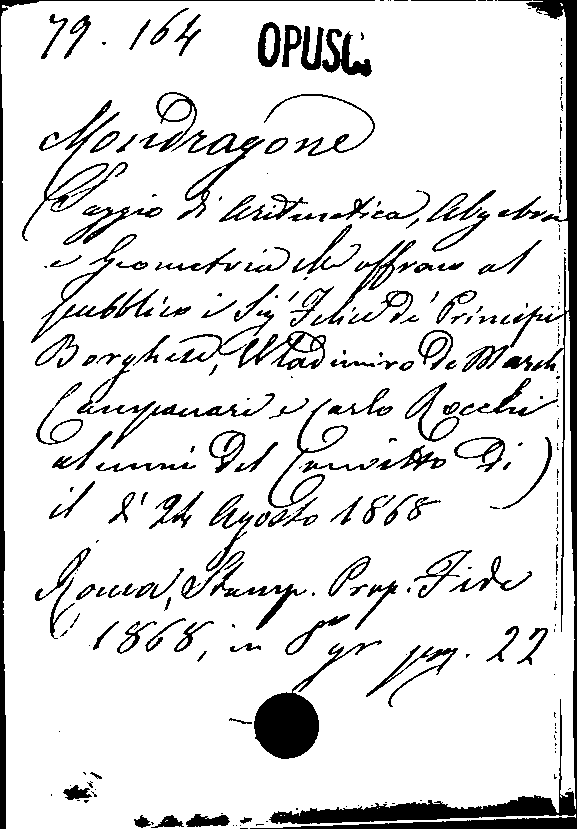 79. 164 OPUSC.
Mondragone
Saggio di Aritmetica, Algebra
e Geometria che offrono al
pubblico i Sigʳⁱ Felice de' Principi
Borghese, Wladimiro De March.
Campanari e Carlo Rocchi
alunni del Convitto di )
il dì 24 Agosto 1868
Roma, Stamp. Prop. Fide
1868, in 8° gr pag. 22